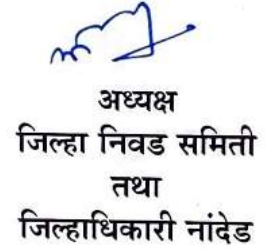 अध्यक्ष
जिल्हा निवड समिती
तथा
जिल्हाधिकारी नांदेड